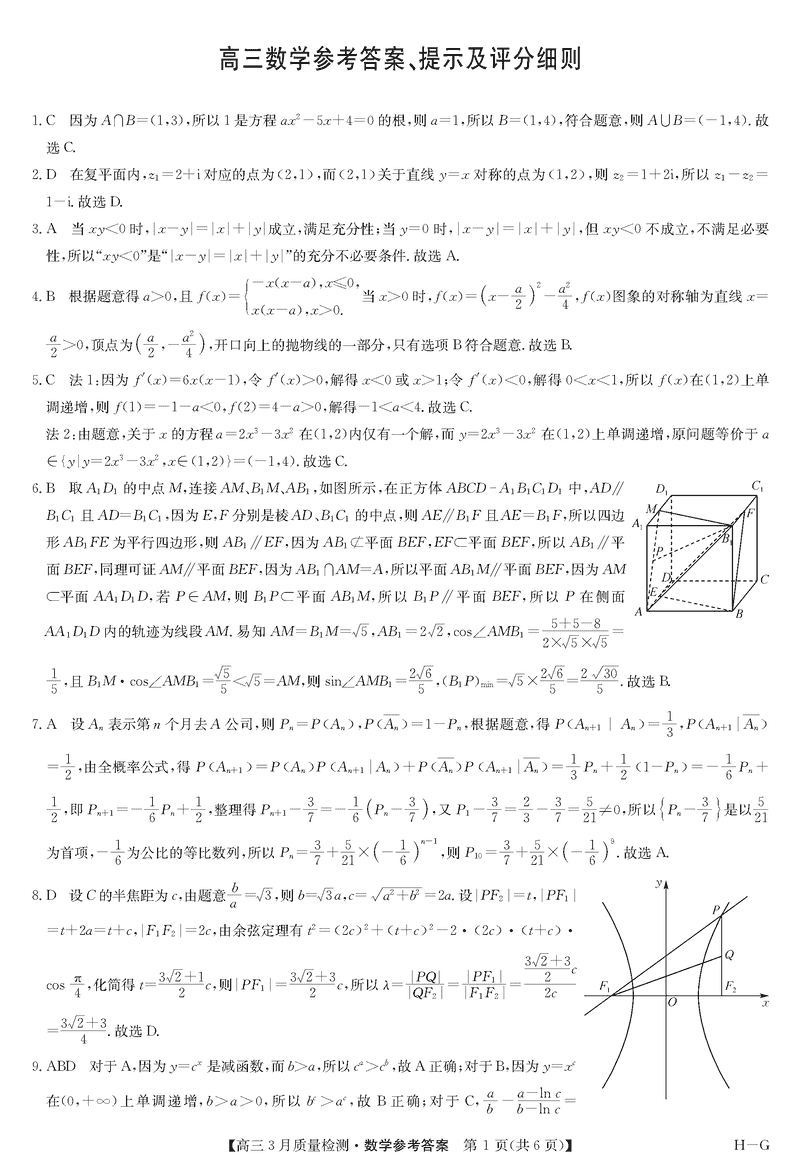 高三数学参考答案、提示及评分细则
1. C 因为 A∩B=(1,3),所以 1 是方程 ax²-5x+4=0 的根,则 a=1,所以 B=(1,4),符合题意,则 A∪B=(-1,4). 故
选 C.
2. D 在复平面内,z₁=2+i 对应的点为(2,1),而(2,1)关于直线 y=x 对称的点为(1,2),则 z₂=1+2i,所以 z₁-z₂=
1-i. 故选 D.
3. A 当 xy<0 时,|x-y|=|x|+|y|成立,满足充分性;当 y=0 时,|x-y|=|x|+|y|,但 xy<0 不成立,不满足必要
性,所以“xy<0”是“|x-y|=|x|+|y|”的充分不必要条件. 故选 A.
4. B 根据题意得 a>0,且 f(x)={-x(x-a),x≤0, x(x-a),x>0. 当 x>0 时,f(x)=(x-a/2)²-a²/4,f(x)图象的对称轴为直线 x=
a/2>0,顶点为(a/2,-a²/4),开口向上的抛物线的一部分,只有选项 B 符合题意. 故选 B.
5. C 法 1:因为 f′(x)=6x(x-1),令 f′(x)>0,解得 x<0 或 x>1;令 f′(x)<0,解得 0<x<1,所以 f(x)在(1,2)上单
调递增,则 f(1)=-1-a<0,f(2)=4-a>0,解得-1<a<4. 故选 C.
法 2:由题意,关于 x 的方程 a=2x³-3x² 在(1,2)内仅有一个解,而 y=2x³-3x² 在(1,2)上单调递增,原问题等价于 a
∈{y|y=2x³-3x²,x∈(1,2)}=(-1,4). 故选 C.
6. B 取 A₁D₁ 的中点 M,连接 AM、B₁M、AB₁,如图所示,在正方体 ABCD-A₁B₁C₁D₁ 中,AD∥
B₁C₁ 且 AD=B₁C₁,因为 E,F 分别是棱 AD、B₁C₁ 的中点,则 AE∥B₁F 且 AE=B₁F,所以四边
形 AB₁FE 为平行四边形,则 AB₁∥EF,因为 AB₁⊄平面 BEF,EF⊂平面 BEF,所以 AB₁∥平
面 BEF,同理可证 AM∥平面 BEF,因为 AB₁∩AM=A,所以平面 AB₁M∥平面 BEF,因为 AM
⊂平面 AA₁D₁D,若 P∈AM,则 B₁P⊂平面 AB₁M,所以 B₁P∥平面 BEF,所以 P 在侧面
AA₁D₁D 内的轨迹为线段 AM. 易知 AM=B₁M=√5,AB₁=2√2,cos∠AMB₁=(5+5-8)/(2×√5×√5)=
1/5,且 B₁M·cos∠AMB₁=√5/5<√5=AM,则 sin∠AMB₁=2√6/5,(B₁P)min=√5×2√6/5=2√30/5. 故选 B.
D₁ C₁
M F
A₁ B₁
P
D C
E
A B
7. A 设 Aₙ 表示第 n 个月去 A 公司,则 Pₙ=P(Aₙ),P(A̅ₙ)=1-Pₙ,根据题意,得 P(Aₙ₊₁|Aₙ)=1/3,P(Aₙ₊₁|A̅ₙ)
=1/2,由全概率公式,得 P(Aₙ₊₁)=P(Aₙ)P(Aₙ₊₁|Aₙ)+P(A̅ₙ)P(Aₙ₊₁|A̅ₙ)=1/3Pₙ+1/2(1-Pₙ)=-1/6Pₙ+
1/2,即 Pₙ₊₁=-1/6Pₙ+1/2,整理得 Pₙ₊₁-3/7=-1/6(Pₙ-3/7),又 P₁-3/7=2/3-3/7=5/21≠0,所以{Pₙ-3/7}是以5/21
为首项,-1/6为公比的等比数列,所以 Pₙ=3/7+5/21×(-1/6)ⁿ⁻¹,则 P₁₀=3/7+5/21×(-1/6)⁹. 故选 A.
8. D 设 C 的半焦距为 c,由题意 b/a=√3,则 b=√3a,c=√(a²+b²)=2a. 设|PF₂|=t,|PF₁|
=t+2a=t+c,|F₁F₂|=2c,由余弦定理有 t²=(2c)²+(t+c)²-2·(2c)·(t+c)·
cos π/4,化简得 t=(3√2+1)/2c,则|PF₁|=(3√2+3)/2c,所以 λ=|PQ|/|QF₂|=|PF₁|/|F₁F₂|=((3√2+3)/2c)/2c
=(3√2+3)/4. 故选 D.
y
P
Q
F₁ F₂
O x
9. ABD 对于 A,因为 y=cˣ 是减函数,而 b>a,所以 cᵃ>cᵇ,故 A 正确;对于 B,因为 y=xᶜ
在(0,+∞)上单调递增,b>a>0,所以 bᶜ>aᶜ,故 B 正确;对于 C,a/b-(a-ln c)/(b-ln c)=
【高三 3 月质量检测·数学参考答案 第 1 页(共 6 页)】 H-G